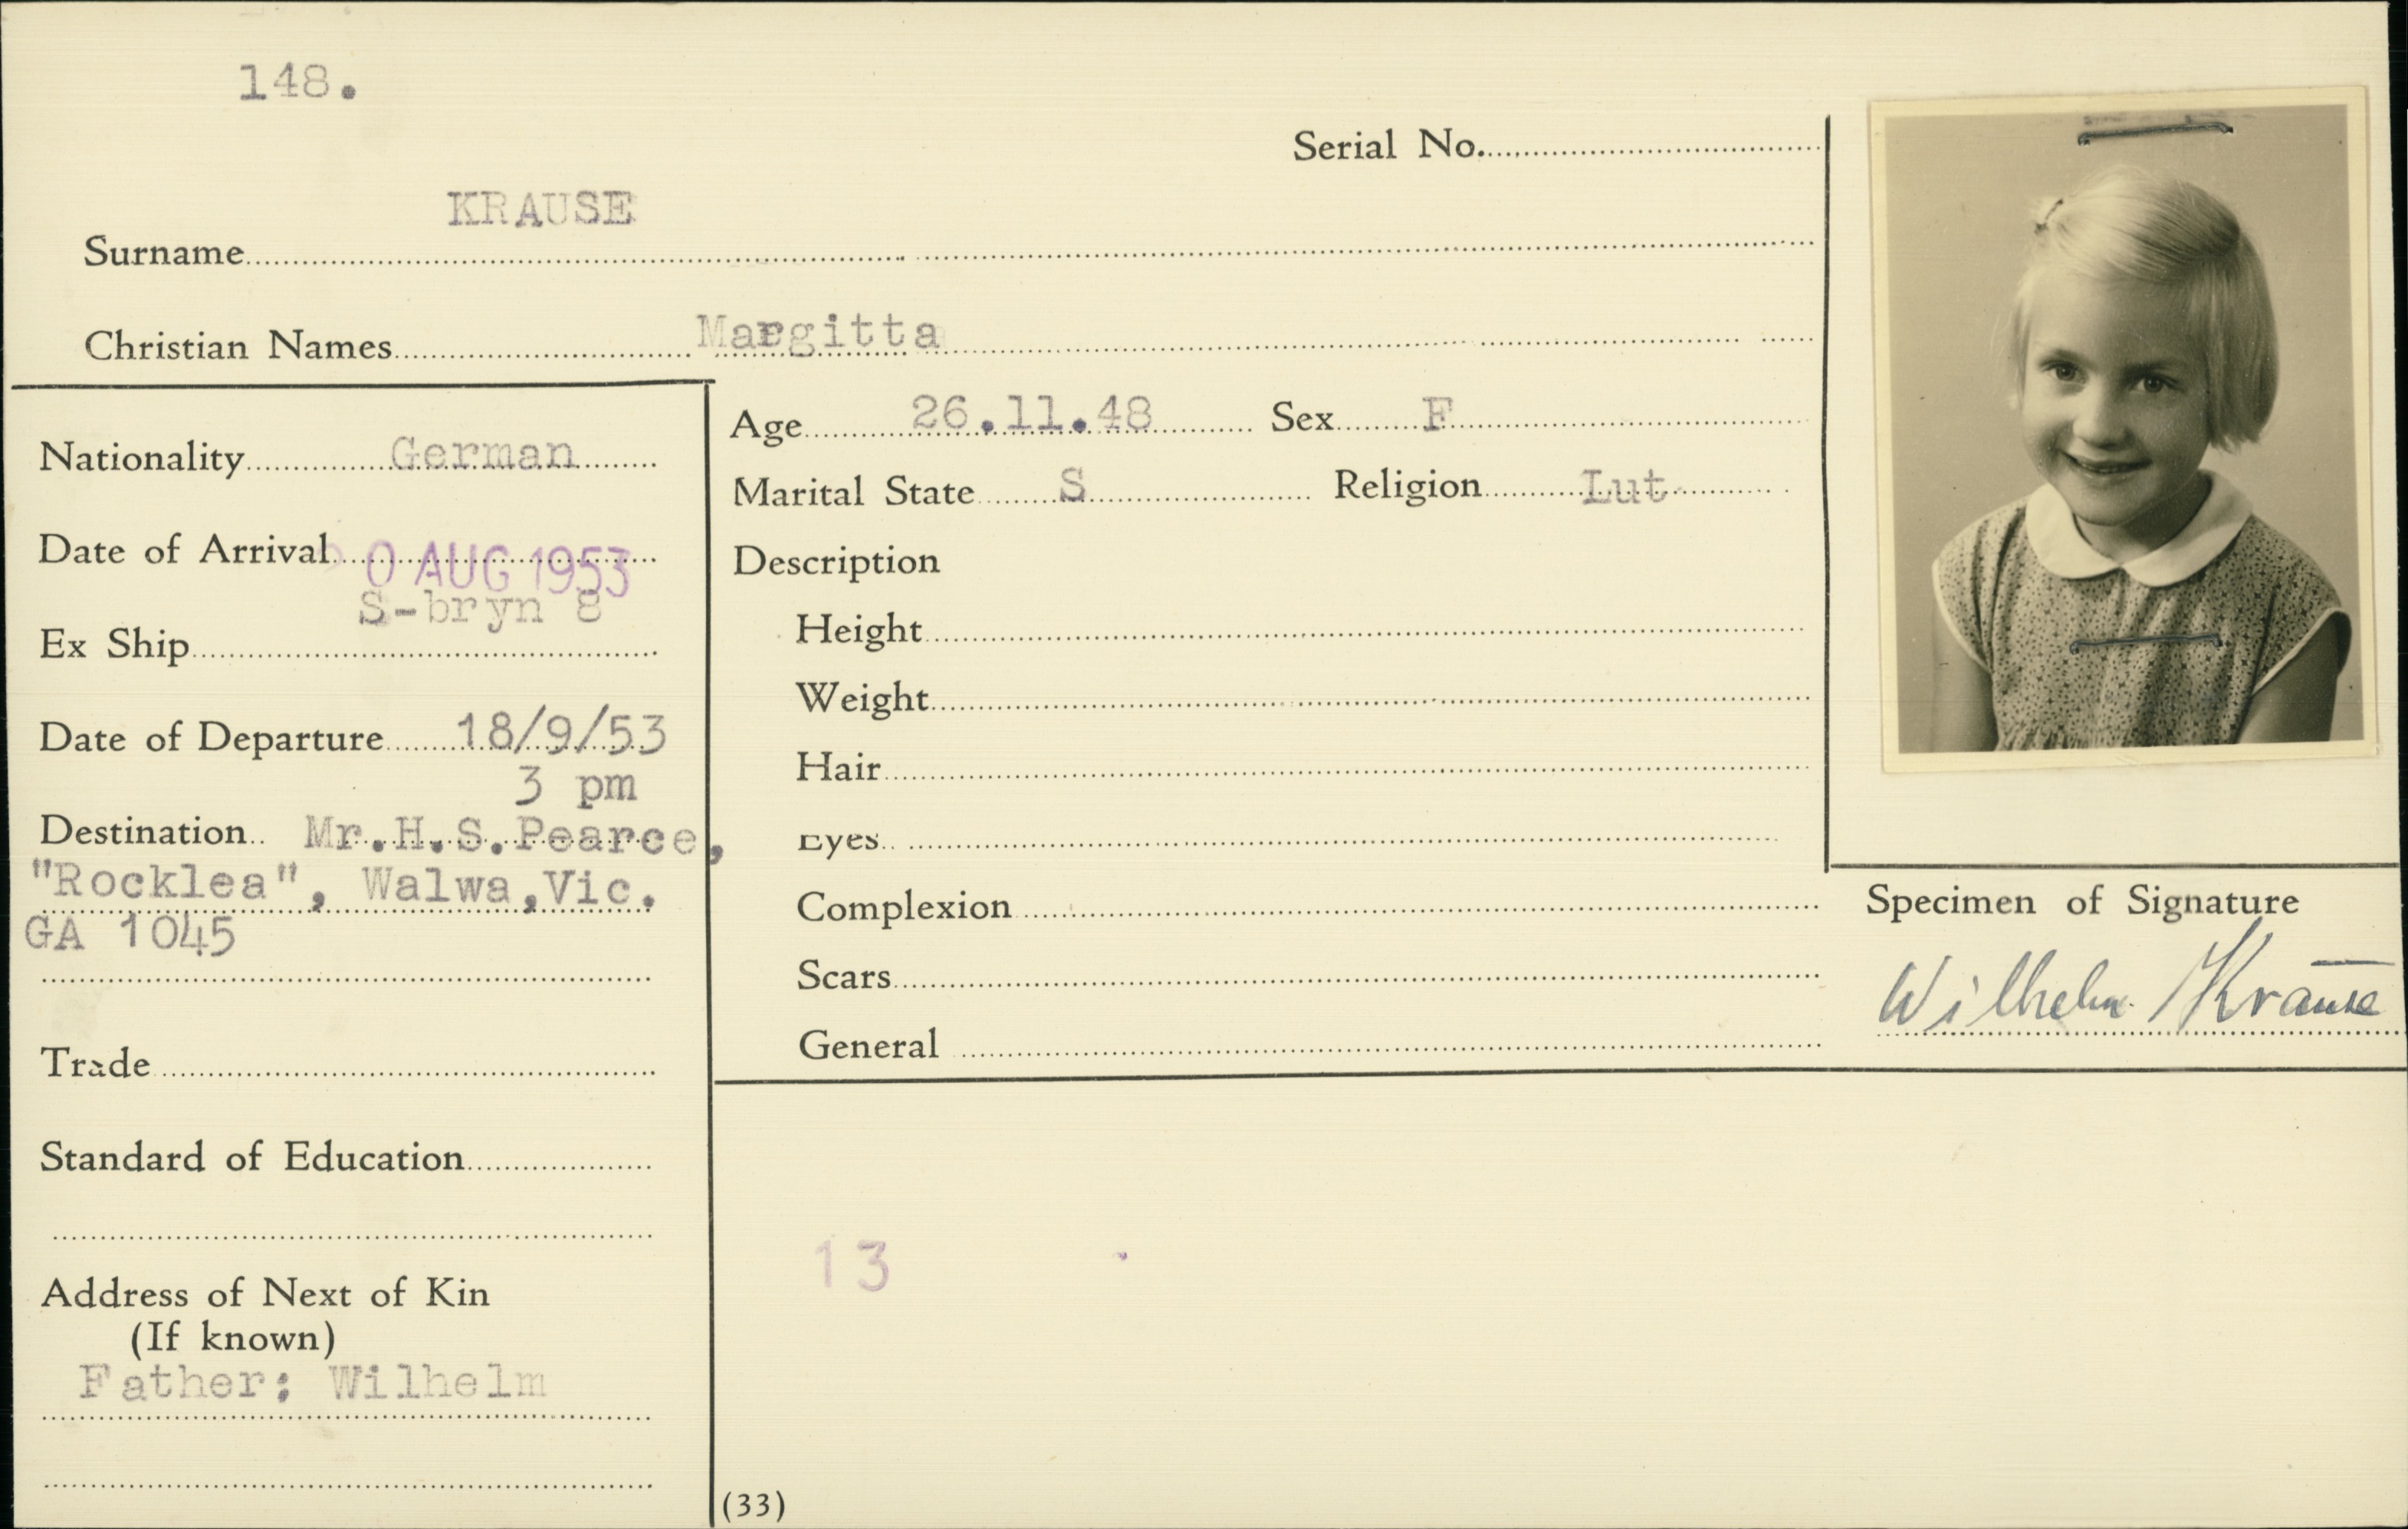 148.
Serial No.
KRAUSE
Surname
Christian Names Margitta
Nationality German
Date of Arrival 0 AUG 1953
S-bryn 8
Ex Ship
Date of Departure 18/9/53
3 pm
Destination Mr.H.S.Pearce,
"Rocklea", Walwa,Vic.
GA 1045
Trade
Standard of Education
Address of Next of Kin
(If known)
Father: Wilhelm
Age 26.11.48 Sex F
Marital State S Religion Lut
Description
Height
Weight
Hair
Eyes
Complexion
Scars
General
Specimen of Signature
Wilhelm Krause
13
(33)